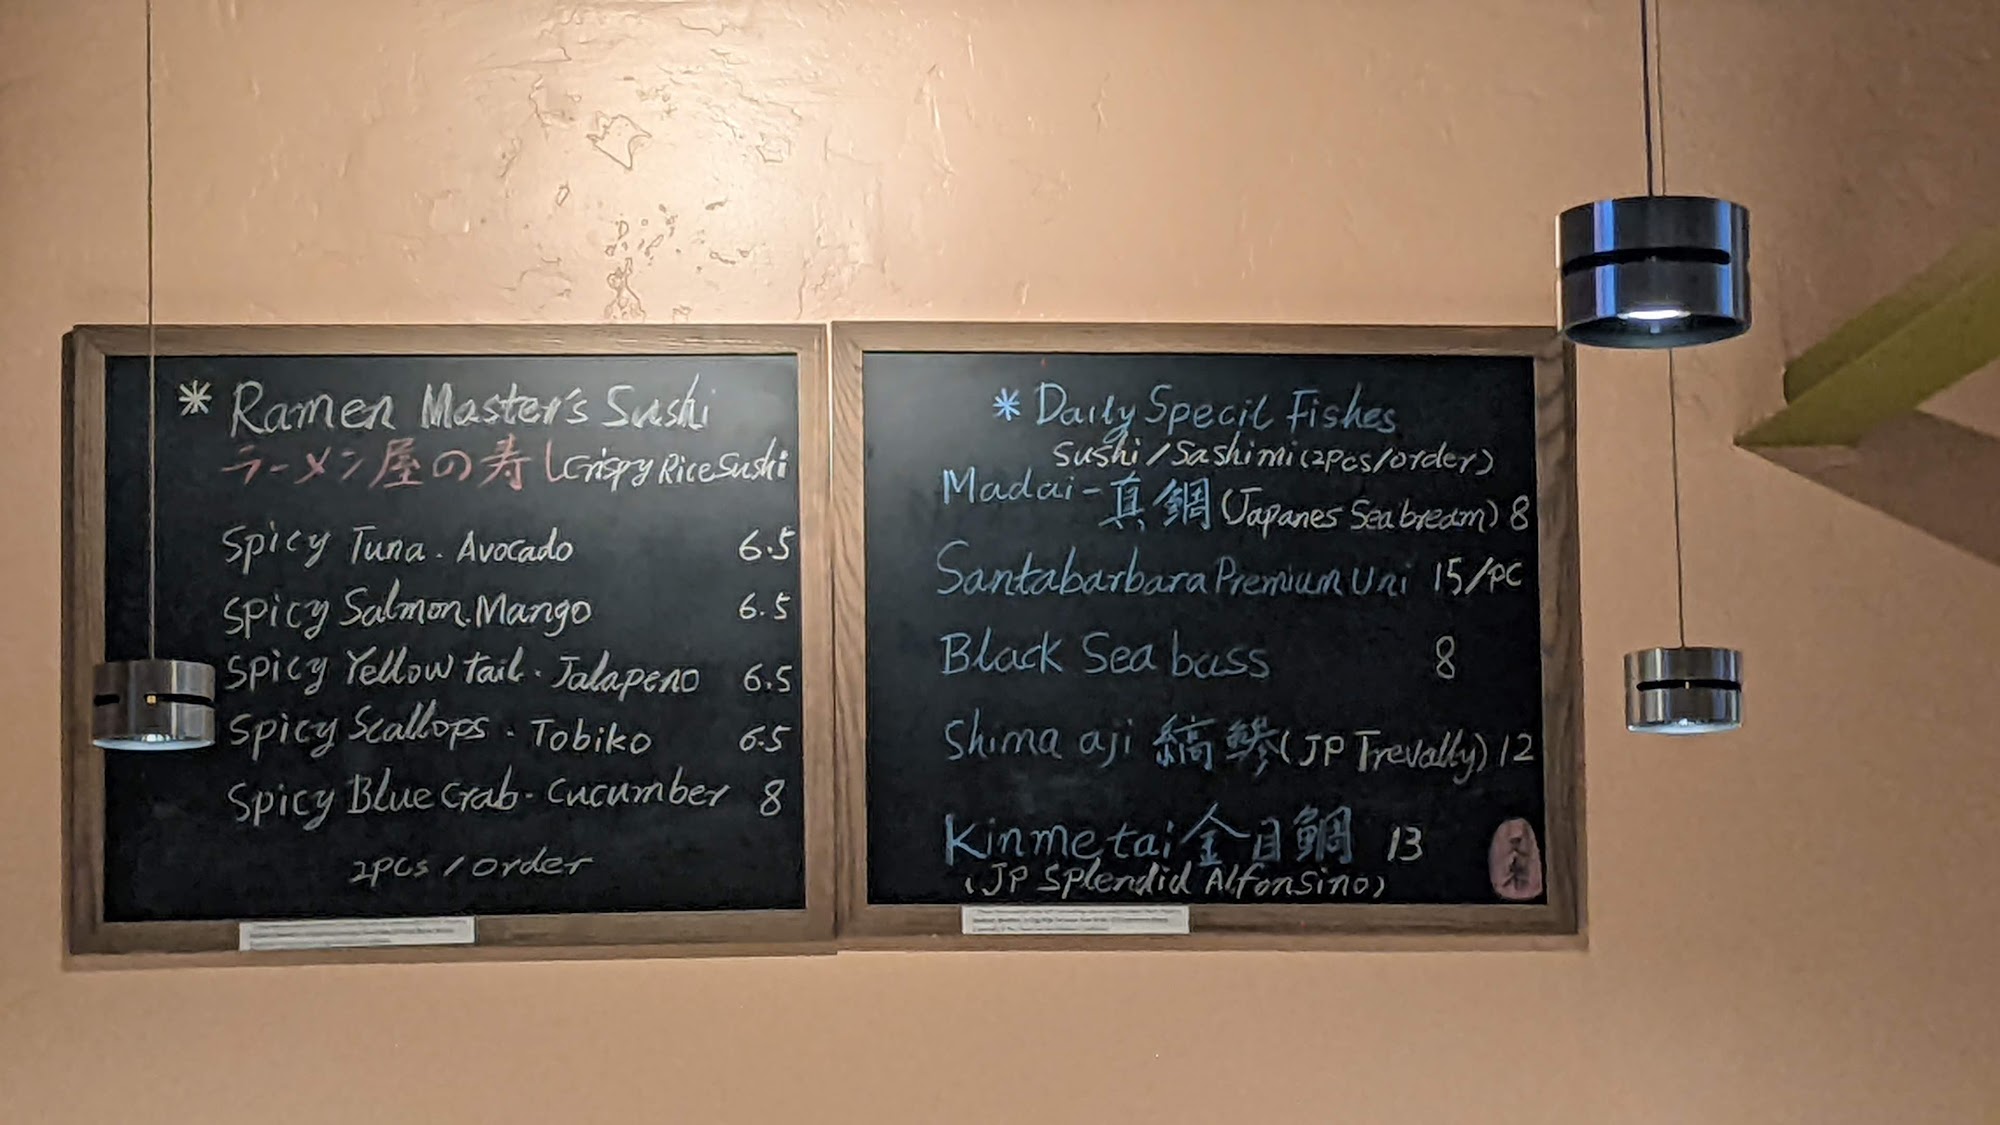 * Ramen Master's Sushi
ラーメン屋の寿し Crispy Rice Sushi
Spicy Tuna. Avocado 6.5
Spicy Salmon. Mango 6.5
Spicy Yellow tail. Jalapeno 6.5
Spicy Scallops. Tobiko 6.5
Spicy Blue Crab- Cucumber 8
2pcs / order
* Daily Specil Fishes
Sushi / Sashimi (2pcs/order)
Madai - 真鯛 (Japanes Sea bream) 8
Santabarbara Premium Uni 15/PC
Black Sea bass 8
Shima aji 縞鯵 (JP Trevally) 12
Kinmetai 金目鯛 13
(JP Splendid Alfonsino)